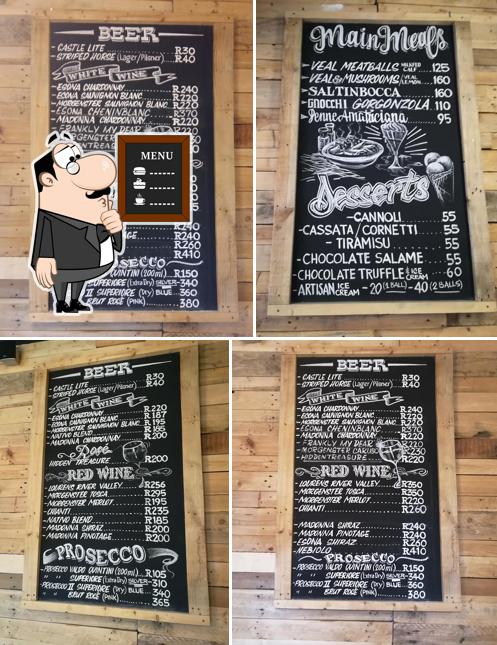 BEER
CASTLE LITE R30
STRIPED HORSE (Lager/Pilsner) R40
WHITE WINE
EGONA CHARDONNAY R240
EGONA SAUVIGNON BLANC R220
MORGENSTER SAUVIGNON BLANC R270
EGONA CHENINBLANC R370
MADONNA CHARDONNAY R220
FRANKLY MY DEAR
MENU
R240
R240
R260
R410
PROSECCO
QUINTINI (200ml) R150
SUPERIORE (Extra Dry) SILVER 340
II SUPERIORE (Dry) BLUE 360
BRUT ROSÈ (PINK) 380
Main Meals
VEAL MEATBALLS 125
VEAL & MUSHROOMS / VEAL LEMON 160
SALTINBOCCA 160
GNOCCHI GORGONZOLA 110
Penne Amatriciana 95
Desserts
- CANNOLI 55
- CASSATA / CORNETTI 55
- TIRAMISU 55
- CHOCOLATE SALAME 55
- CHOCOLATE TRUFFLE & ICE CREAM 60
- ARTISAN ICE CREAM - 20 (1 BALL) - 40 (2 BALLS)
BEER
- CASTLE LITE R30
- STRIPED HORSE (Lager/Pilsner) R40
WHITE WINE
EGONA CHARDONNAY R220
EGONA SAUVIGNON BLANC R187
MORGENSTER SAUVIGNON BLANC R195
NATIVO BLEND R195
MADONNA CHARDONNAY R200
Rosé
HIDDEN TREASURE R200
RED WINE
- LOURENS RIVER VALLEY R256
MORGENSTER TOSCA R295
MORGENSTER MERLOT R195
- CHIANTI R235
- NATIVO BLEND R185
MADONNA SHIRAZ R200
MADONNA PINOTAGE R200
PROSECCO
- PROSECCO VALDO QUINTINI (200ml) R105
" " SUPERIORE (Extra Dry) SILVER 310
- PROSECCO II SUPERIORE (Dry) BLUE 340
" " BRUT ROSÈ (PINK) 365
BEER
- CASTLE LITE R30
- STRIPED HORSE (Lager/Pilsner) R40
WHITE WINE
EGONA CHARDONNAY R240
EGONA SAUVIGNON BLANC R220
MORGENSTER SAUVIGNON BLANC R270
EGONA CHENINBLANC R370
MADONNA CHARDONNAY R220
FRANKLY MY DEAR R220
MORGENSTER CARUSO R230
HIDDENTREASURE R220
RED WINE
- LOURENS RIVER VALLEY R350
MORGENSTER TOSCA R350
MORGENSTER MERLOT R220
- CHIANTI R260
- MADONNA SHIRAZ R240
- MADONNA PINOTAGE R240
- EGONA SHIRAZ R260
- NEBIOLO R410
PROSECCO
- PROSECCO VALDO QUINTINI (200ml) R150
" " SUPERIORE (Extra Dry) SILVER 340
- PROSECCO II SUPERIORE (Dry) BLUE 360
" " BRUT ROSÈ (PINK) 380